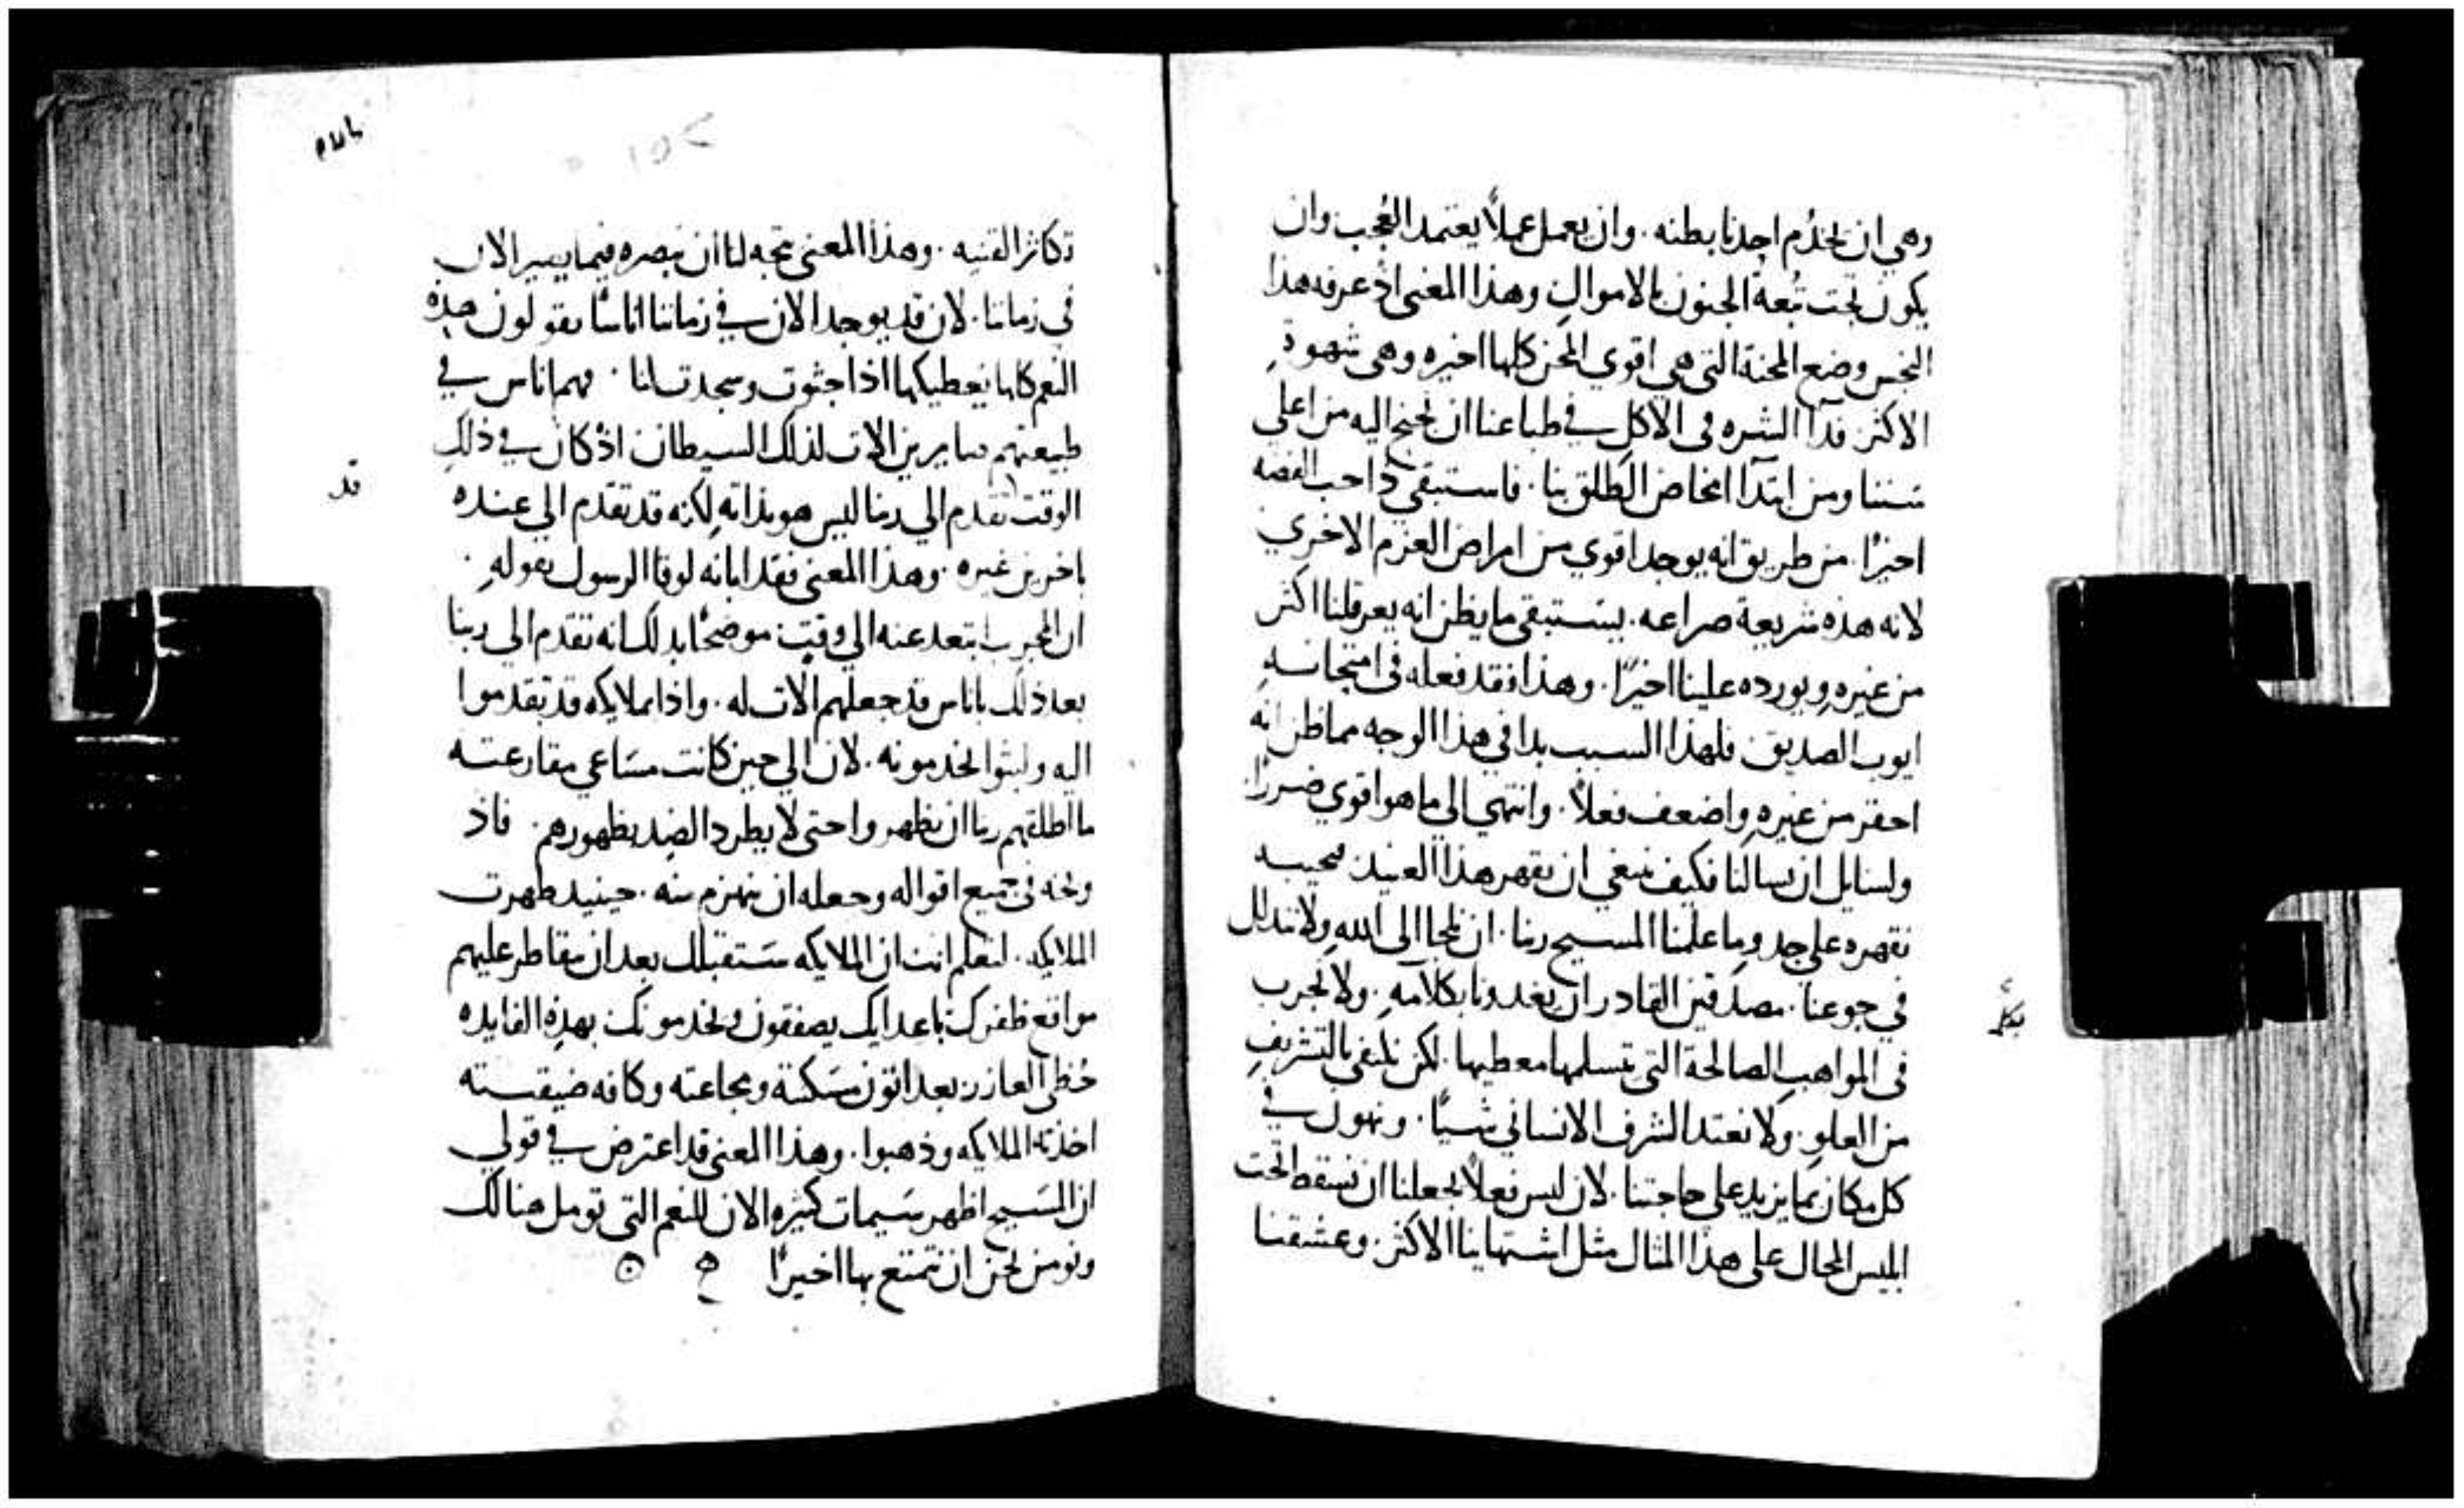 وهي ان يخدم احدنا بطنه. وان يعمل عملاً يعتمد العُجب وان
يكون تحت تُبعة الجنون بالاموال وهذا المعنى اذ عرفه هذا
النجس وضع المحنة التي هي اقوي المحن كلها اخيره وهي شهوة
الاكثر. فدآ الشره في الاكل في طباعنا ان نجنح اليه من اعلي
سننا ومن ابتدآ امخاض الطلق بنا. فاستبقي دا حب الفضه
اخيرًا. من طريق انه يوجد اقوي من امراض العزم الاخري
لانه هذه شريعة صراعه. يستبقي ما يظن انه يعرقلنا اكثر
من غيره ويورده علينا اخيرًا. وهذا فقد فعله في امتحانه
ايوب الصديق. فلهذا السبب بدا في هذا الوجه مما ظن انه
احقر من غيره واضعف فعلاً. وانتهي الي ما هو اقوي ضررًا.
ولسايل ان يسالنا فكيف ينبغي ان نقهر هذا العنيد نجيبه
نقهره علي حد وما علمنا المسيح ربنا. ان نلجا الى الله ولا نتدلل
في جوعنا. مصدقين القادر ان يغدونا بكلامه. ولا نجرب
بكل
في المواهب الصالحة التي نتسلمها معطيها. لكن نكتفي بالتشريف
من العلو. ولا نعتد الشرف الانساني شيًا. ونهون في
كل مكان بما يزيد على حاجتنا. لان ليس فعلاً يجعلنا ان نسقط تحت
ابليس المحال على هذا المثال مثل اشتهاينا الاكثر. وعشقنا
تكاثر القنيه. وهذا المعني يتجه لنا ان نبصره فيما يصير الان
في زماننا. لان قد يوجد الان في زماننا اناسًا يقولون هذه
النعم كلها نعطيكها اذا جثوت وسجدت لنا. فهم اناس في
طبيعتهم صايرين الات لذلك الشيطان اذ كان في ذلك
قد
الوقت تقدم الي ربنا ليس هو بذاته لكنه قد تقدم الي عنده
باخرين غيره. وهذا المعنى فقد ابانه لوقا الرسول بقوله.
ان المجرب ابتعد عنه الي وقت موضحًا بدلك انه تقدم الي ربنا
بعد ذلك باناس قد جعلهم الات له. واذا ملايكه قد تقدموا
اليه ولبثوا يخدمونه. لان الي حين كانت مساعي مقارعته
ما اطلقهم ربنا ان يظهروا حتى لا يطرد الضد بظهورهم. فاذ
وبخه في جميع اقواله وجعله ان ينهزم منه. حينيد ظهرت
الملايكه. لتعلم انت ان الملايكه ستستقبلك بعد ان تقاطر عليهم
مواقع ظفرك باعدايك يصفقون ويخدمونك بهذه الفايده
حظي العازر بعد اتون مسكنته ومجاعته وكافه ضيقسته
اخذته الملايكه وذهبوا. وهذا المعني قد اعترض في قولي
ان المسيح اظهر سيمات كثيره الان للنعم التي نومل هنالك
ونومن نحن ان نتمتع بها اخيرًا